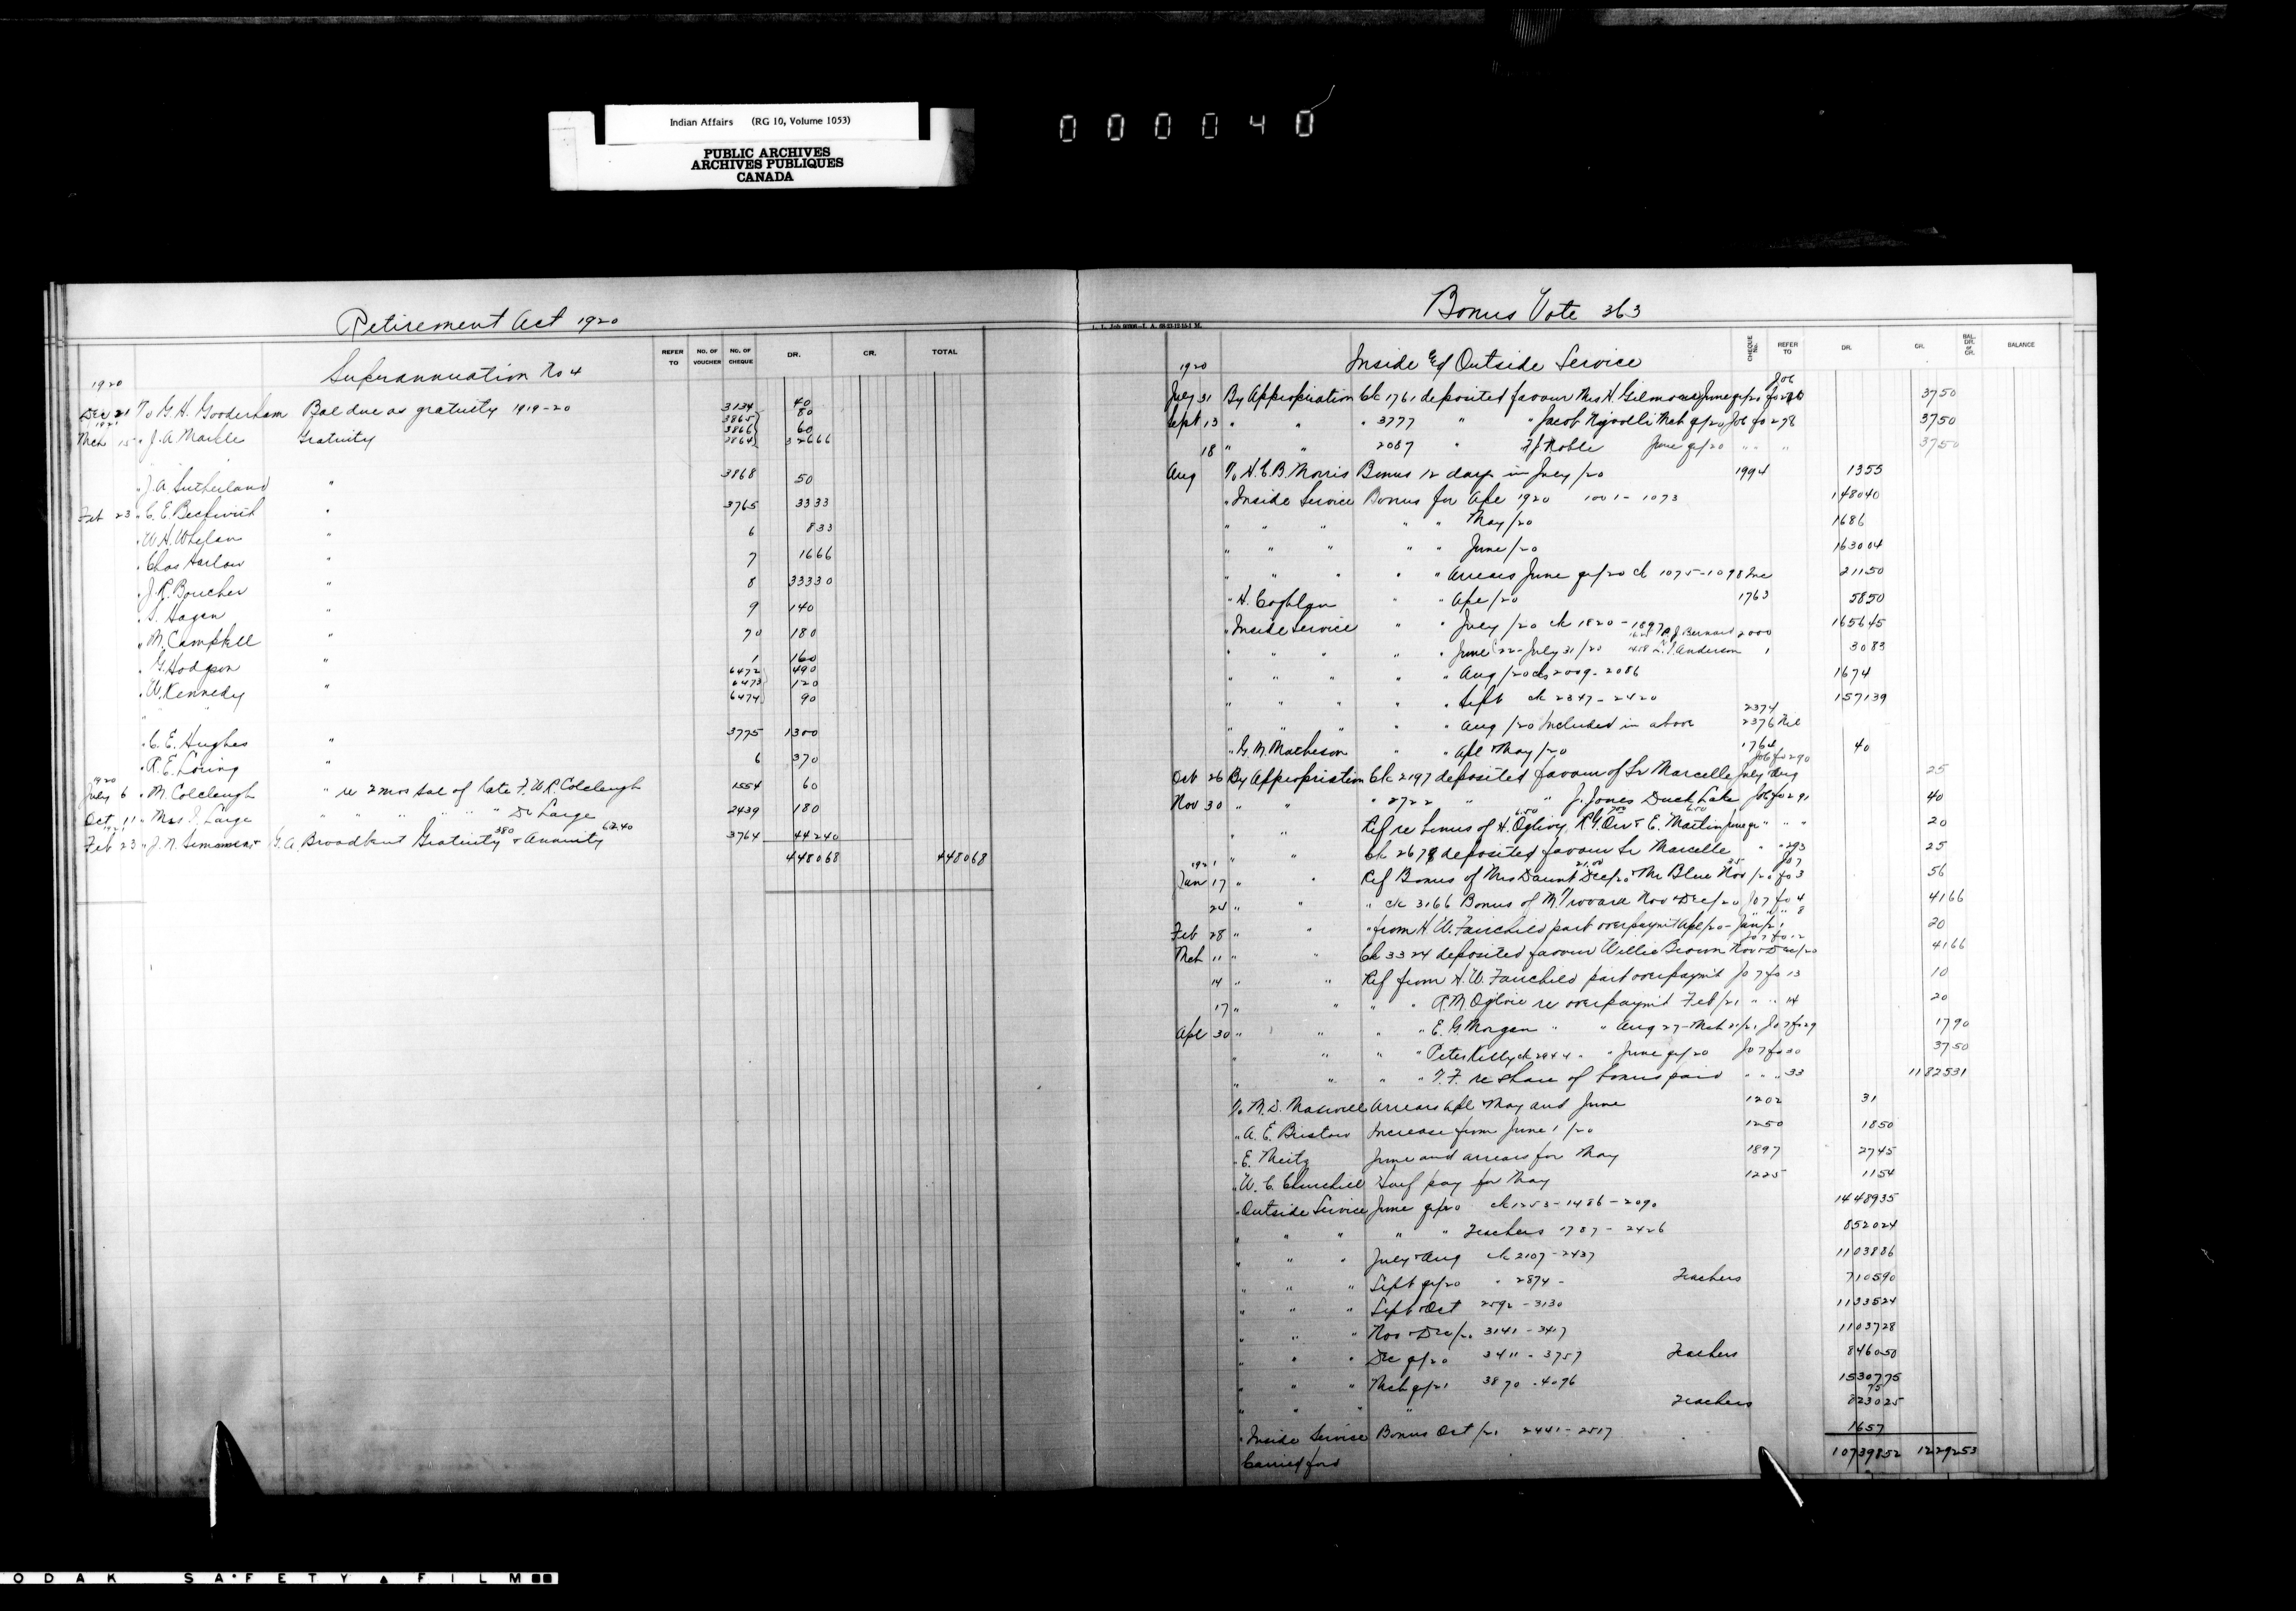 Indian Affairs (RG 10, Volume 1053)
PUBLIC ARCHIVES
ARCHIVES PUBLIQUES
CANADA
000040
Retirement Act 1920
REFER TO NO. OF VOUCHER NO. OF CHEQUE DR. CR. TOTAL
Superannuation No 4
1920
Dec 21 To G.H. Gooderham Bal due as gratuity 1919-20 3134 40
1921 3865 80
3866 60
Mch 15 " J.A. Markle Gratuity 3864 32666
" J.A. Sutherland " 3868 50
Feb 23 " C.E. Beckwith " 3765 3333
" W.H. Whelan " 6 833
" Chas Harlow " 7 1666
" J.R. Boucher " 8 33330
" S. Hagan " 9 140
" M. Campbell " 70 180
" G. Hodgson " 1 160
6472 490
" W. Kennedy " 6473 120
" " 6474 90
" C.E. Hughes " 3775 1300
" R.E. Loring " 6 370
1920
July 6 " M. Colcleugh " re 2 mos sal of late F.W.R. Colcleugh 1554 60
Oct 11 " Mrs J. Large " " " " " Dr Large 2439 180
1921
Feb 23 " J.N. G.A. Broadbent Gratuity 380 & Annuity 62.40 3764 44240
448068 448068
Bonus Vote 363
CHEQUE No. REFER TO DR. CR. BAL. DR. or CR. BALANCE
1920 Inside and Outside Service
July 31 By Appropriation Ck 1761 deposited favour Mrs H. Gilmore June qr/20 Jo6 fo 3750
Sept 13 " " " 3777 " " Jacob Mch qr/20 Jo6 fo 278 3750
18 " " 2087 " F.J. Noble June qr/20 " " 3750
Aug To H.C.B. Morris Bonus 12 days in July/20 1994 1355
" Inside Service Bonus for Apl 1920 1001-1073 148040
" " " " " May/20 1686
" " " " " June/20 163004
" " " " " Arrears June qr/20 ck 1075-1098 Inc 21150
" H. Coghlan " " Apl/20 1763 5850
" Inside Service " " July/20 ck 1820-1897 165645
" " " " " June 22-July 31/20 A.J. Bernard Anderson 2000 3083
" " " " " Aug/20 cks 2009-2086 1674
" " " " " Sept ck 2347-2420 157139
2374
" " " " " Aug/20 Included in above 2376 Nil
" G.M. Matheson " " Apl & May/20 1764 40
Jo6 fo 290
Oct 26 By Appropriation Ck 2197 deposited favour of Sr Marcelle July & Aug 25
Nov 30 " " " 2722 " " J. Jones Duck Lake Jo6 fo 291 40
" " Ref re bonus of H. Ogilvy 6.50, R.G. Orr 7.00 & E. Martin 6.50 June qr " " " 20
" " Ck 2678 deposited favour Sr Marcelle " " 293 25
1921 Jo7
Jan 17 " " Ref Bonus of Mrs Daunt 21.00 Dec/20 Mr Blue 35 Nov/20 fo 3 56
24 " " " ck 3166 Bonus of M. Nov & Dec/20 Jo7 fo 4 4166
Feb 28 " " " from H.W. Fairchild part overpaymt Apl/20-Jan/21 " " 8 20
Mch 11 " " Ck 3324 deposited favour Willie Brown Nov & Dec/20 Jo7 fo 12 4166
14 " " Ref from H.W. Fairchild part overpaymt Jo7 fo 13 10
17 " " " " R.M. Ogilvie re overpaymt Feb/21 " " 14 20
Apl 30 " " " " E.G. Morgan " " Aug 27-Mch 31/21 Jo7 fo 29 1790
" " " " Peter Kelly ck 2944 " " June qr/20 Jo7 fo 30 3750
" " " " T.F. re share of bonus paid " " " 33 1182531
To M.D. Maxwell Arrears Apl & May and June 1202 31
" A.E. Bristow Increase from June 1/20 1250 1850
" E. Meitz June and arrears for May 1897 2745
" W.C. Churchill Half pay for May 1225 1154
" Outside Service June qr/20 ck 1253-1486-2090 1448935
" " " " " Teachers 1787-2426 852024
" " " July & Aug ck 2107-2437 1103886
" " " Sept qr/20 " 2874- Teachers 710590
" " " Sept & Oct 2592-3130 1133524
" " " Nov & Dec/20 3141-3417 1103728
" " " Dec qr/20 3411-3757 Teachers 846050
" " " Mch qr/21 3870-4096 1530775
75
" " " " Teachers 823025
" Inside Service Bonus Oct/20 2441-2517 1657
Carried ford 10739852 1229253
KODAK SAFETY FILM